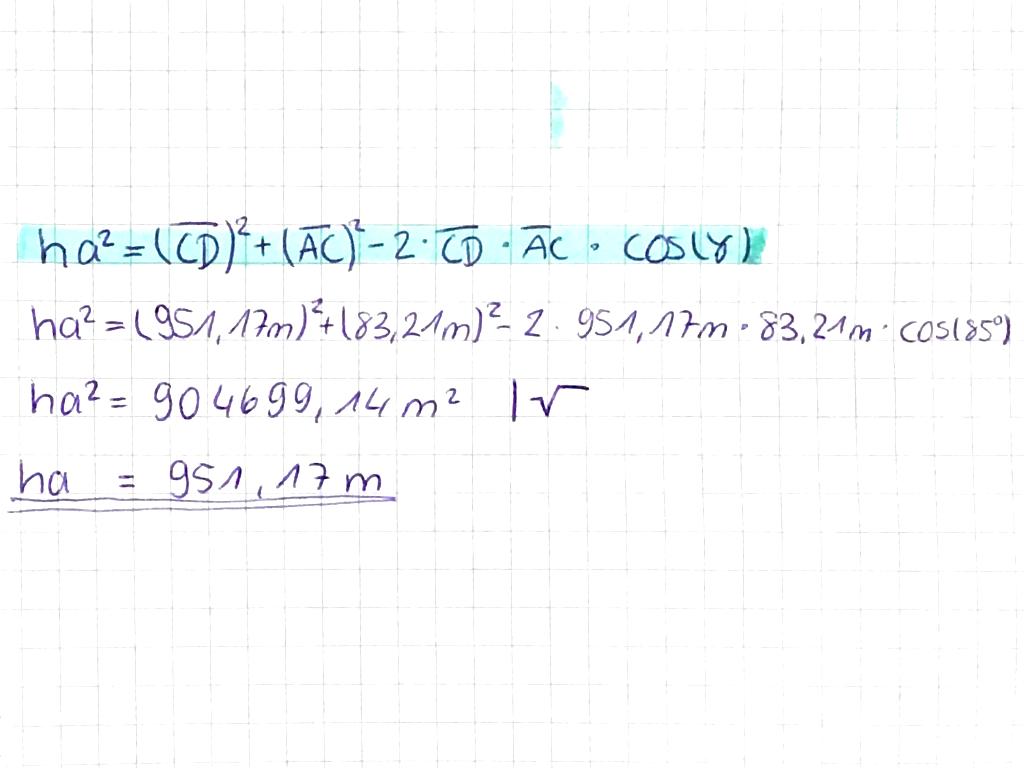 ha² = (C̅D̅)² + (A̅C̅)² - 2 · C̅D̅ · A̅C̅ · cos(γ)
ha² = (951,17m)² + (83,21m)² - 2 · 951,17m · 83,21m · cos(85°)
ha² = 904699,14 m² |√
ha = 951,17 m